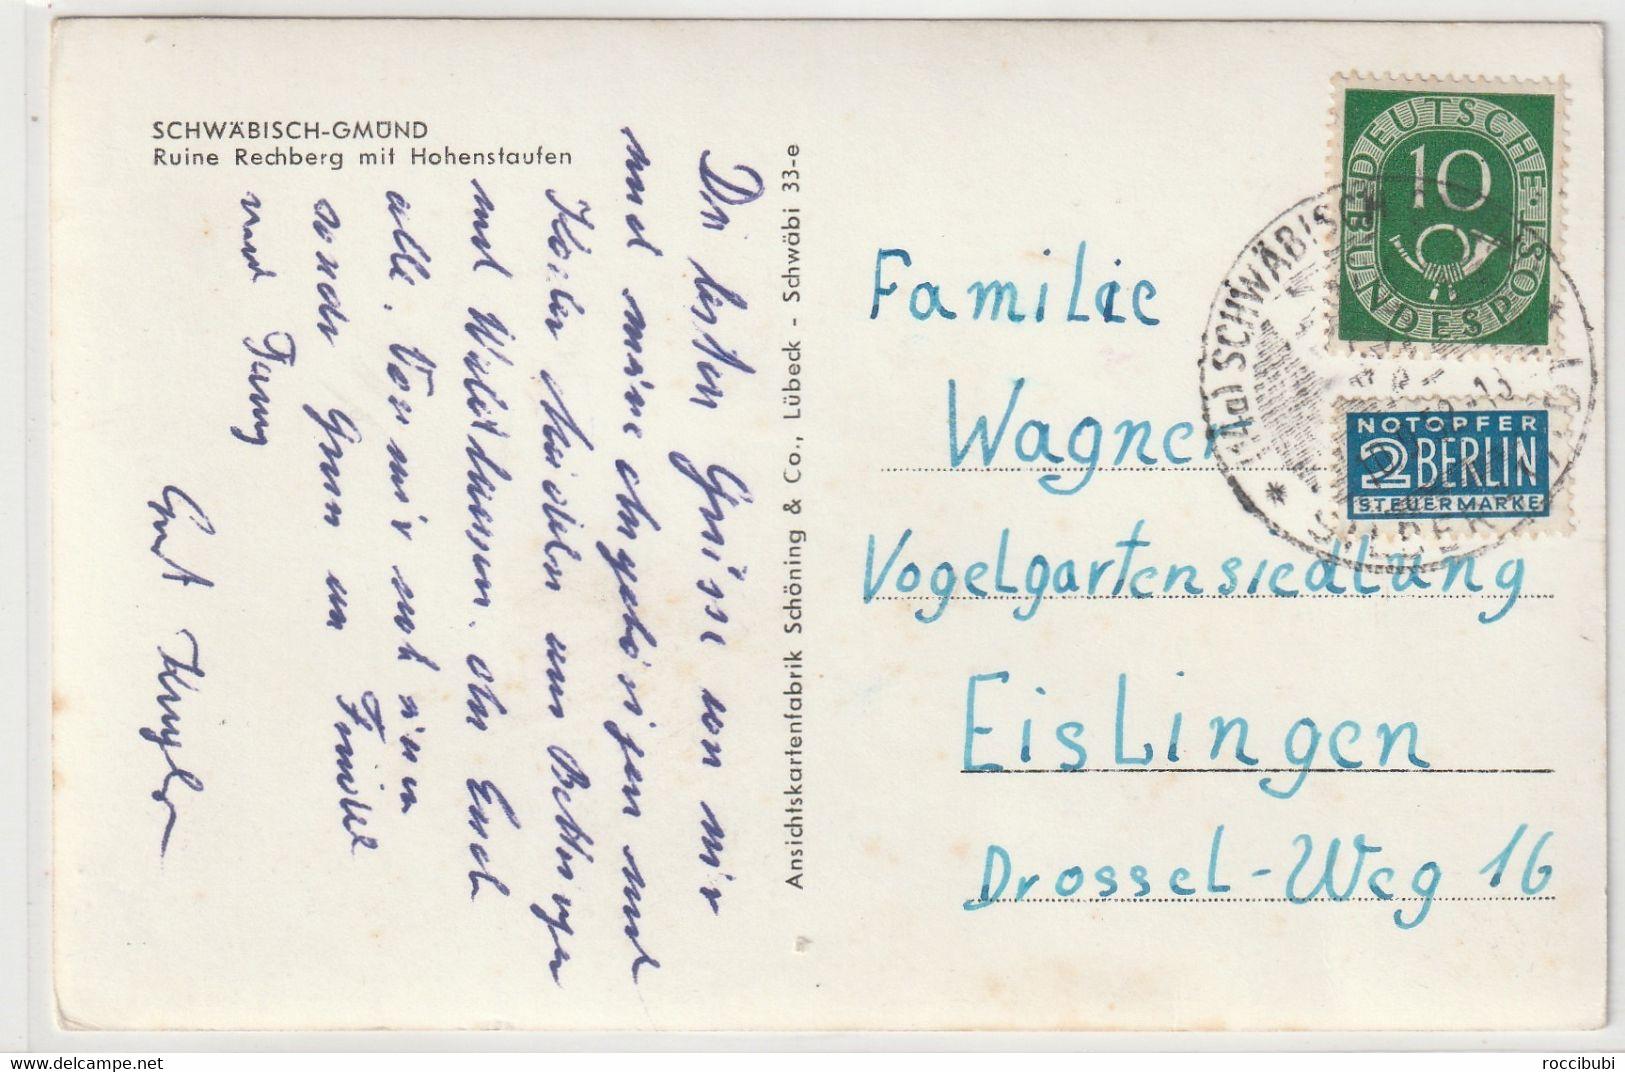 SCHWÄBISCH-GMÜND
Ruine Rechberg mit Hohenstaufen
Die besten Grüsse von mir
und meine Angehörigen und
aus Bettringen
und Waldhausen. An Euch
alle. Von mir noch einen
sonder Gruss an
und Fanny
Ansichtskartenfabrik Schöning & Co., Lübeck - Schwäbi 33-e
DEUTSCHE BUNDESPOST
10
NOTOPFER
2 BERLIN
STEUERMARKE
(14a) SCHWÄBISCH
Familie
Wagner
Vogelgartensiedlung
Eislingen
Drossel-Weg 16
delcampe.net
roccibubi